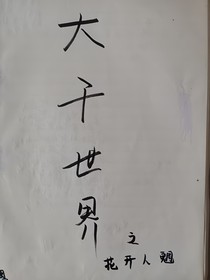 大千世界
之
花开人